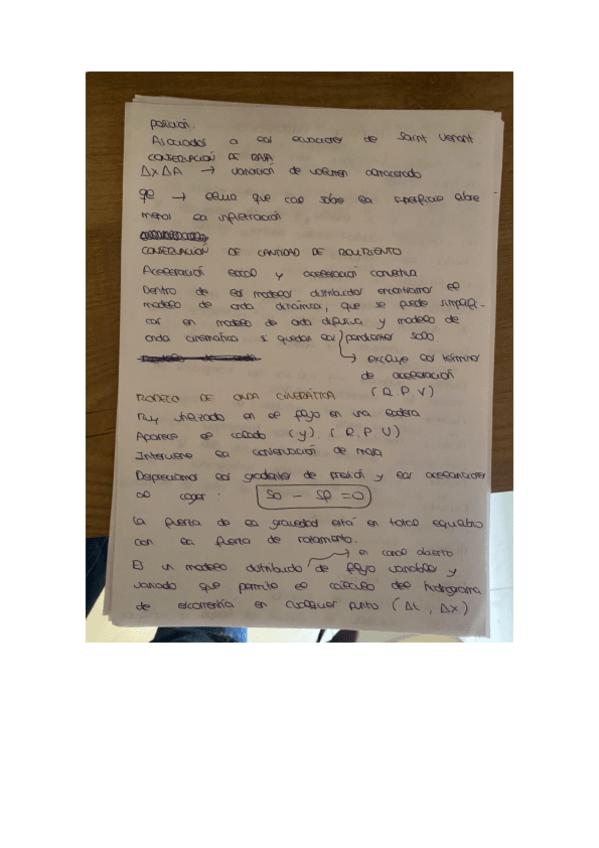 posición.
Asociados a las ecuaciones de Saint Venant
CONSERVACIÓN DE MASA
Δx ΔA → variación de volumen almacenado
qe → lluvia que cae sobre la superficie libre
menos la infiltración
CONSERVACIÓN DE CANTIDAD DE MOVIMIENTO
Aceleración local y aceleración convectiva
Dentro de los modelos distribuidos encontramos el
modelo de onda dinámica, que se puede simplifi-
car en modelo de onda difusiva y modelo de
onda cinemática si quedan las pendientes solo
↳ excluye los términos
de aceleración
(R.P.V)
MODELO DE ONDA CINEMÁTICA
Muy utilizado en el flujo en una ladera
Aparece el calado (y). (R.P.V)
Interviene la conservación de masa
Despreciamos los gradientes de presión y las aceleraciones
al coger: So - Sf = 0
La fuerza de la gravedad está en total equilibrio
con la fuerza de rozamiento.
→ en canal abierto
Es un modelo distribuido de flujo variables y
variado que permite el cálculo del hidrograma
de escorrentía en cualquier punto (Δt, Δx)